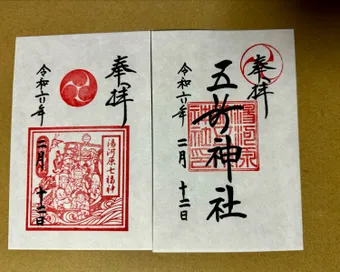 奉拝
湯河原七福神
令和六年 二月 十二日
奉拝
五所神社
令和六年 二月 十二日